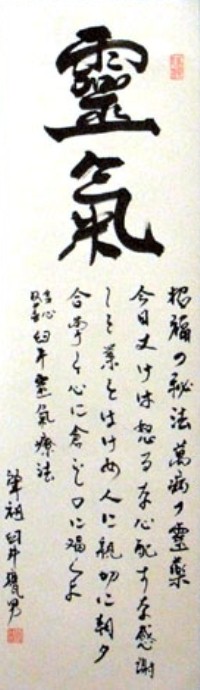 靈氣
招福の秘法萬病の靈藥
今日丈けは怒るな心配すな感謝
して業をはげめ人に親切に朝夕
合掌して心に念じ口に唱へよ
心身
改善 臼井靈氣療法
肇祖 臼井甕男